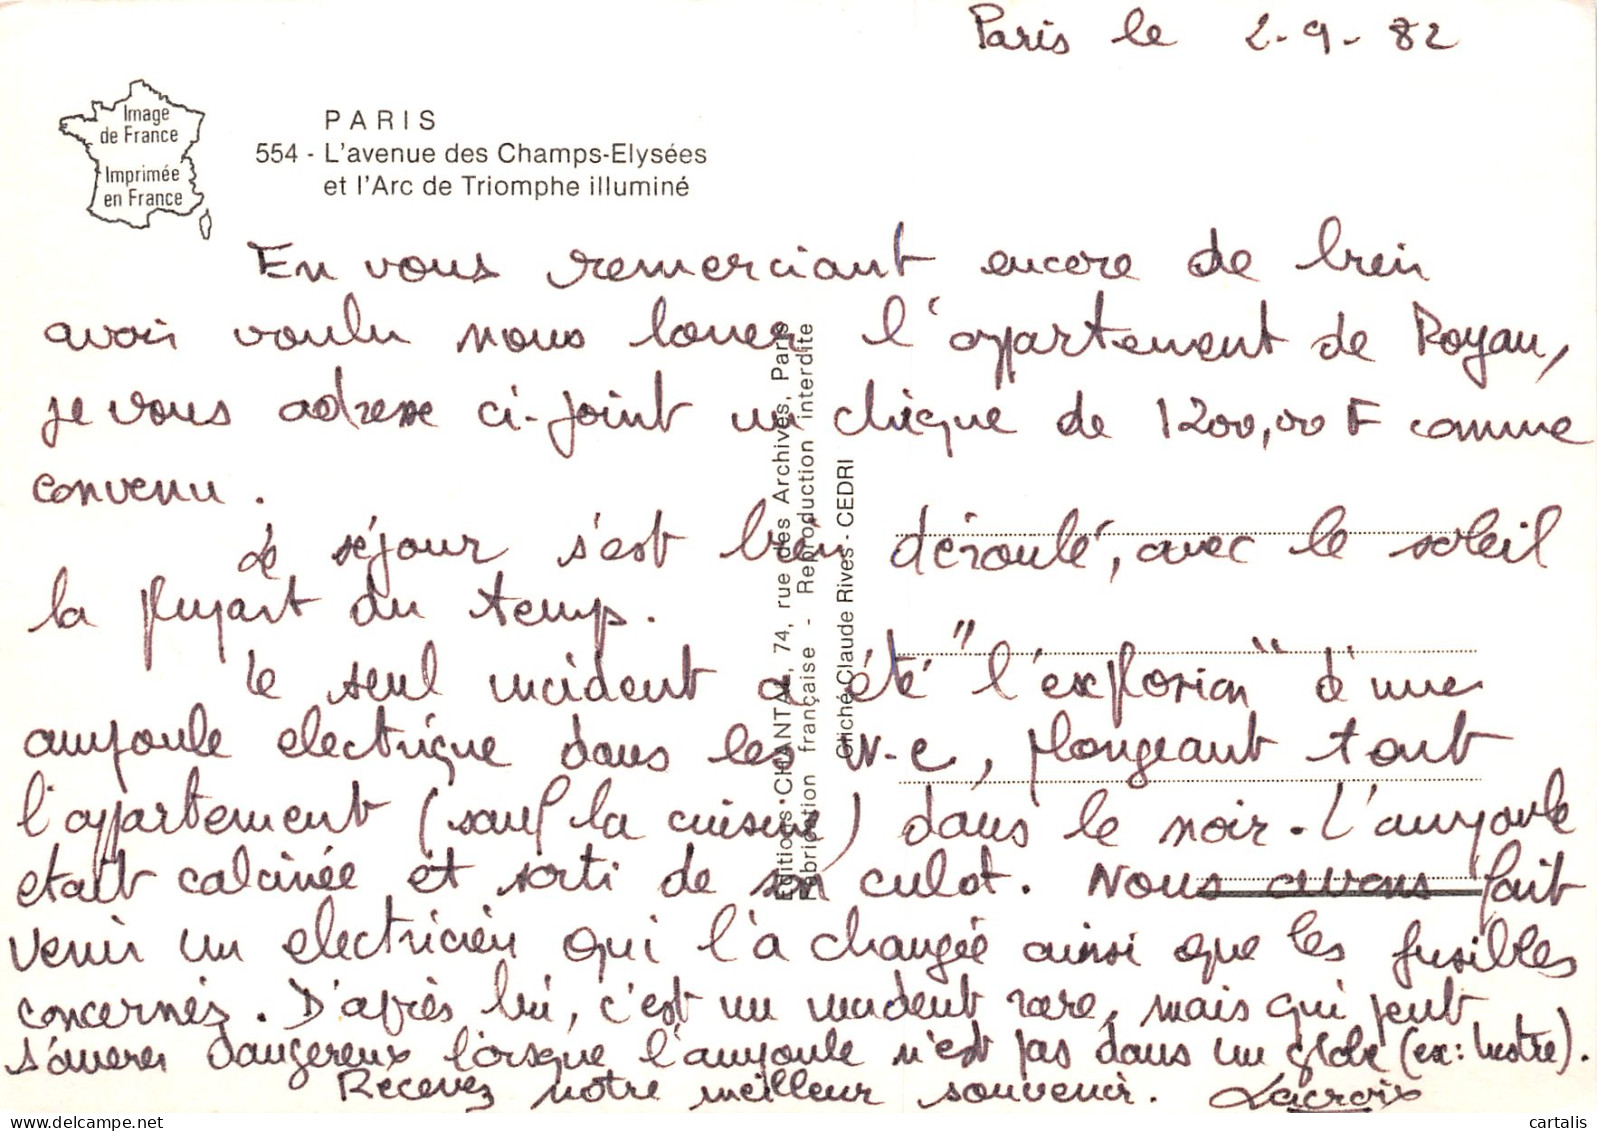 Paris le 2-9-82
Image
de France
Imprimée
en France
PARIS
554 - L'avenue des Champs-Elysées
et l'Arc de Triomphe illuminé
En vous remerciant encore de bien
avoir voulu nous louer l'appartement de Royan,
je vous adresse ci-joint un chèque de 1200,00 F comme
convenu.
Le séjour s'est bien déroulé, avec le soleil
la plupart du temps.
Le seul incident a été "l'explosion" d'une
ampoule electrique dans les W-C, plongeant tout
l'appartement (sauf la cuisine) dans le noir. L'ampoule
etait calcinée et sorti de son culot. Nous avons fait
venir un electricien qui l'a changée ainsi que les fusibles
concernés. D'après lui, c'est un incident rare, mais qui peut
s'averer dangereux lorsque l'ampoule n'est pas dans un globe (ex: lustre).
Recevez notre meilleur souvenir. Lacroix
Editions CHANTAL, 74, rue des Archives, Paris
Fabrication française - Reproduction interdite
Cliché Claude Rives - CEDRI
cartalis